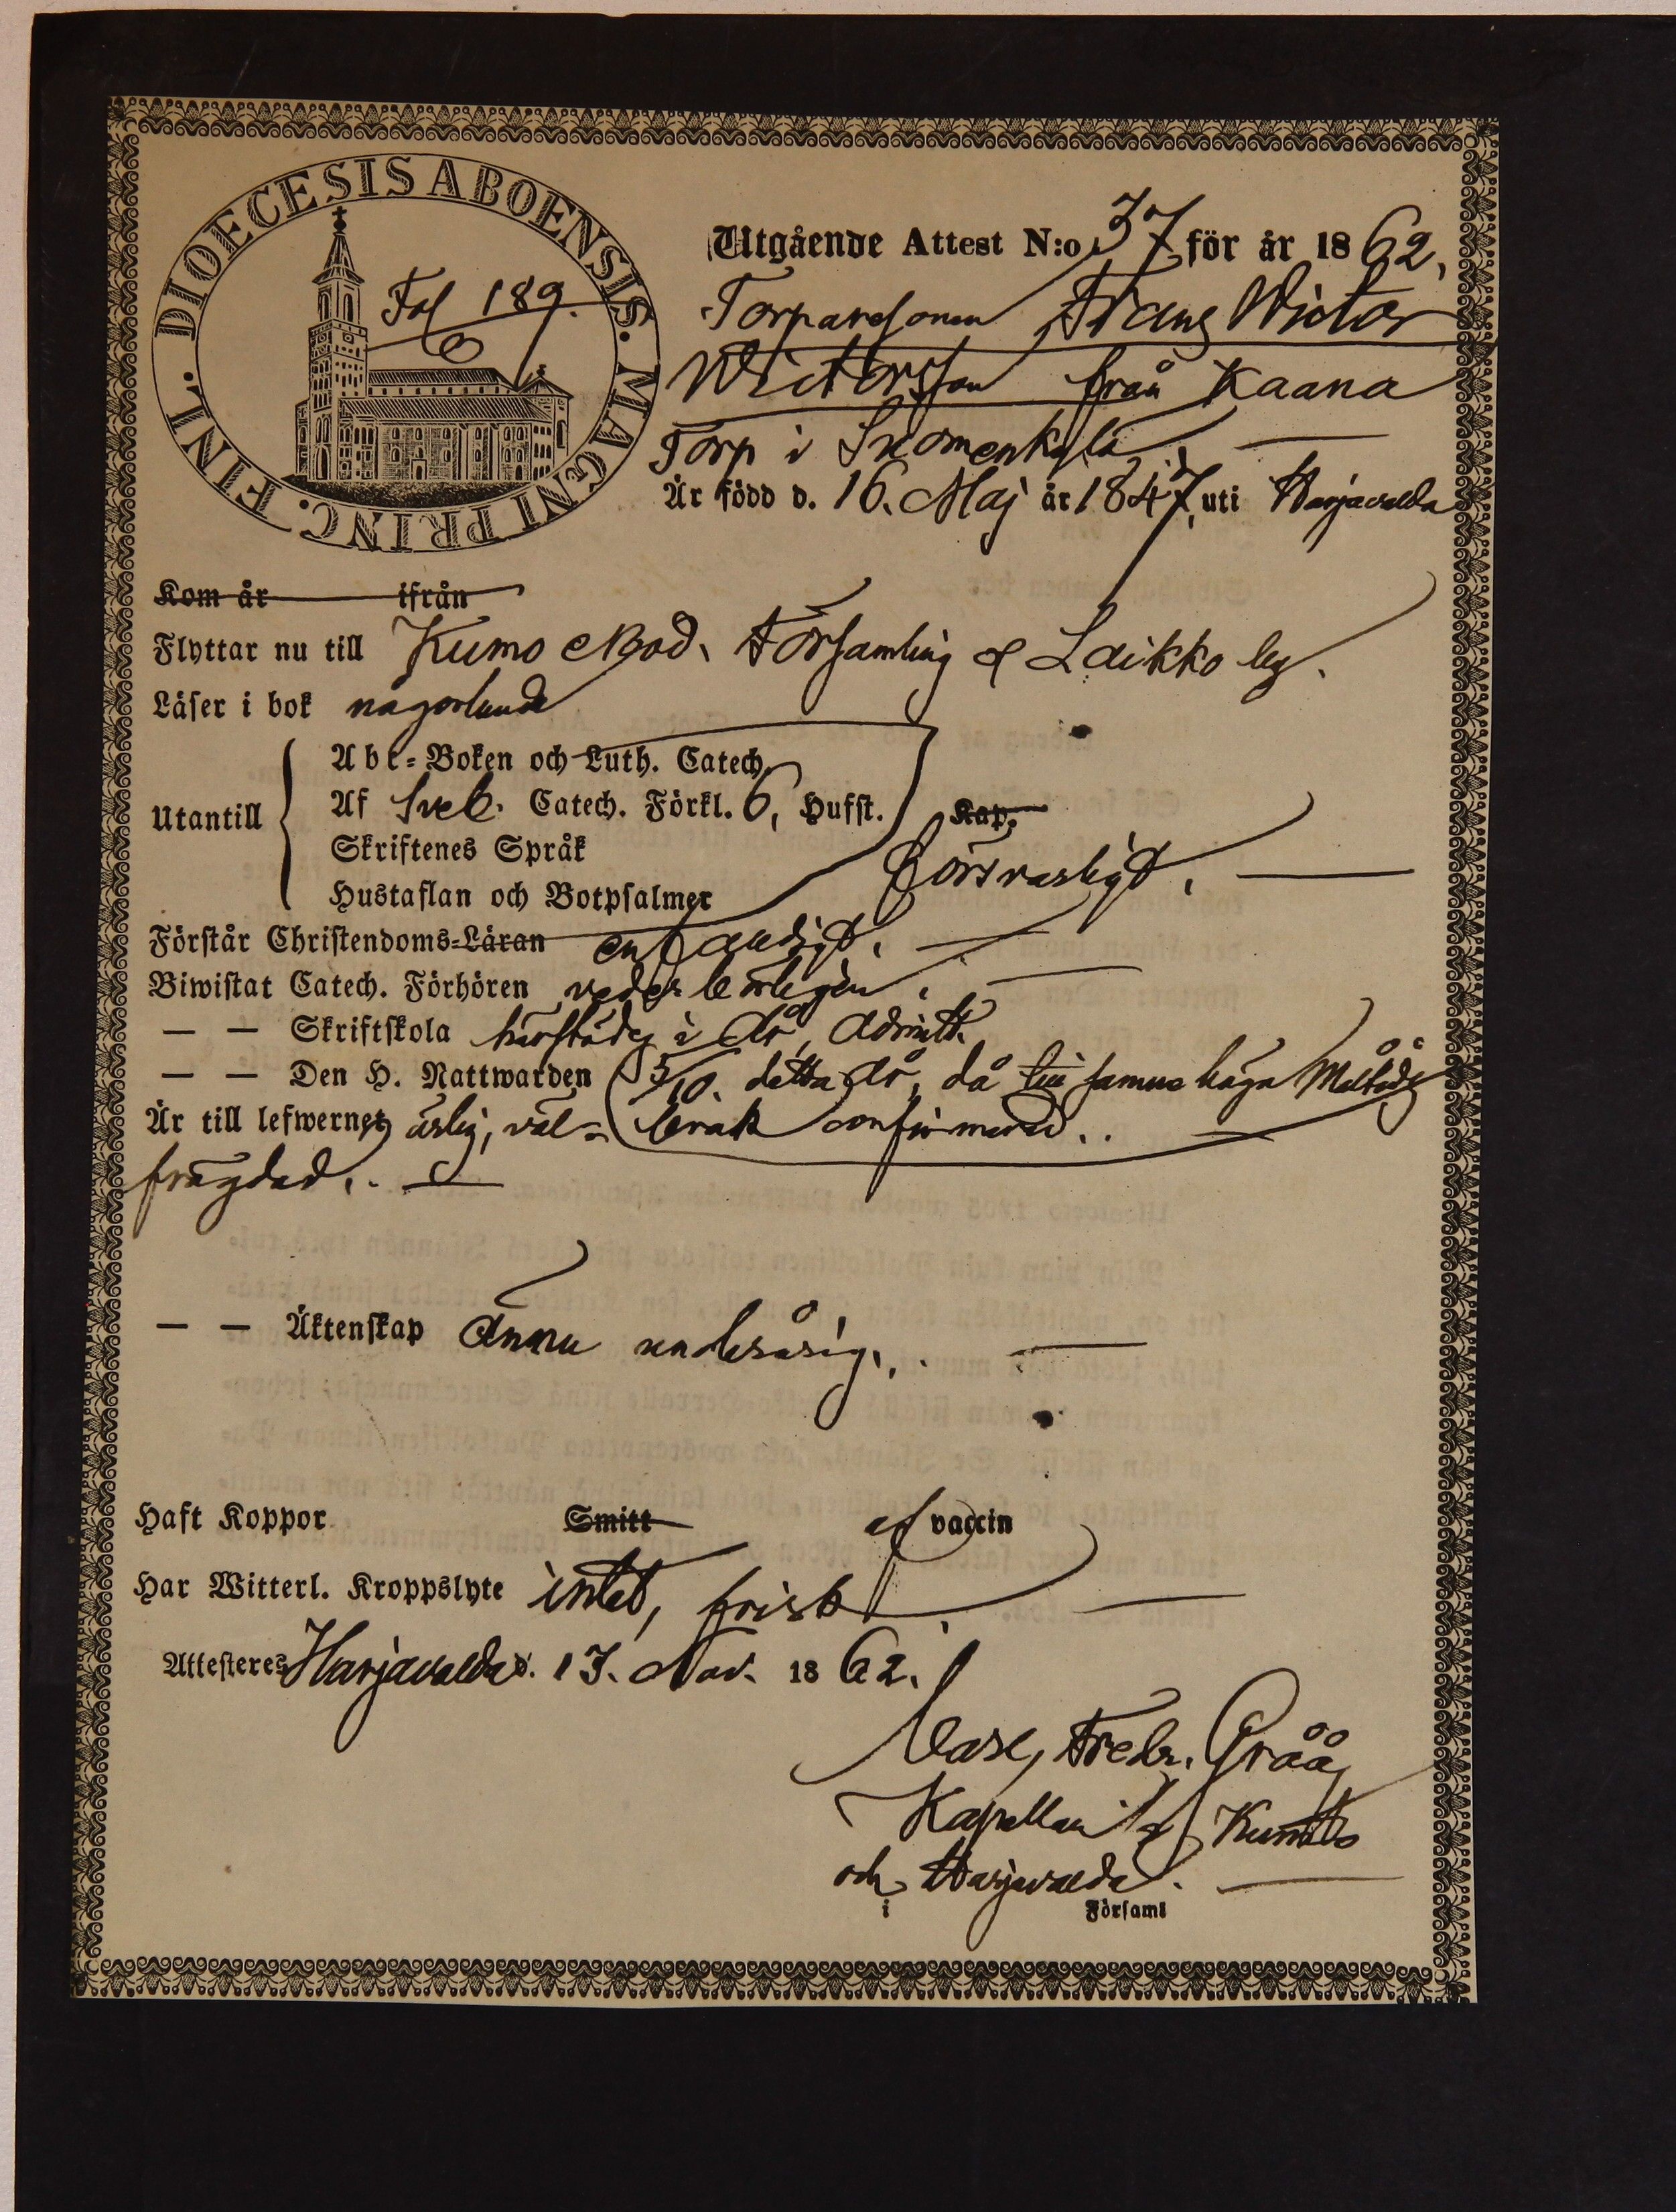 DIOECESIS ABOENSIS. MAGNI PRINC. FINL.
Fol 189.
Utgående Attest N:o 37 för år 1862,
Torparesonen Frans Wictor
Wictorsson från Kaana
Torp i Suomenkylä
Är född d. 16. Maj år 1847, uti Harjavalda
Kom år ifrån
Flyttar nu till Kumo Mod. Församling & Laikko by.
Läser i bok någorlunda
Utantill
Abc-Boken och Luth. Catech.
Af Sveb. Catech. Förkl. 6, Hufst. Kap.
Skriftenes Språk
Hustaflan och Botpsalmer
försvarligt.
Förstår Christendoms-Läran enfaldigt.
Biwistat Catech. Förhören vederbörligen.
— — Skriftskola härstädes i år, admitt.
— — Den H. Nattwarden 5/10. detta år, då samma höga Måltid
Är till lefwernet ärlig, väl- bruk confirmerad..
frägdad..
— — Äktenskap ännu underårig..
Haft Koppor Smitt af vaccin
Har Witterl. Kroppslyte intet, frisk
Attesteres Harjavalda d. 13. Nov. 1862.
Carl Fredr. Gråå,
Kapellan i Kumo
och Harjavalda.
i Församl